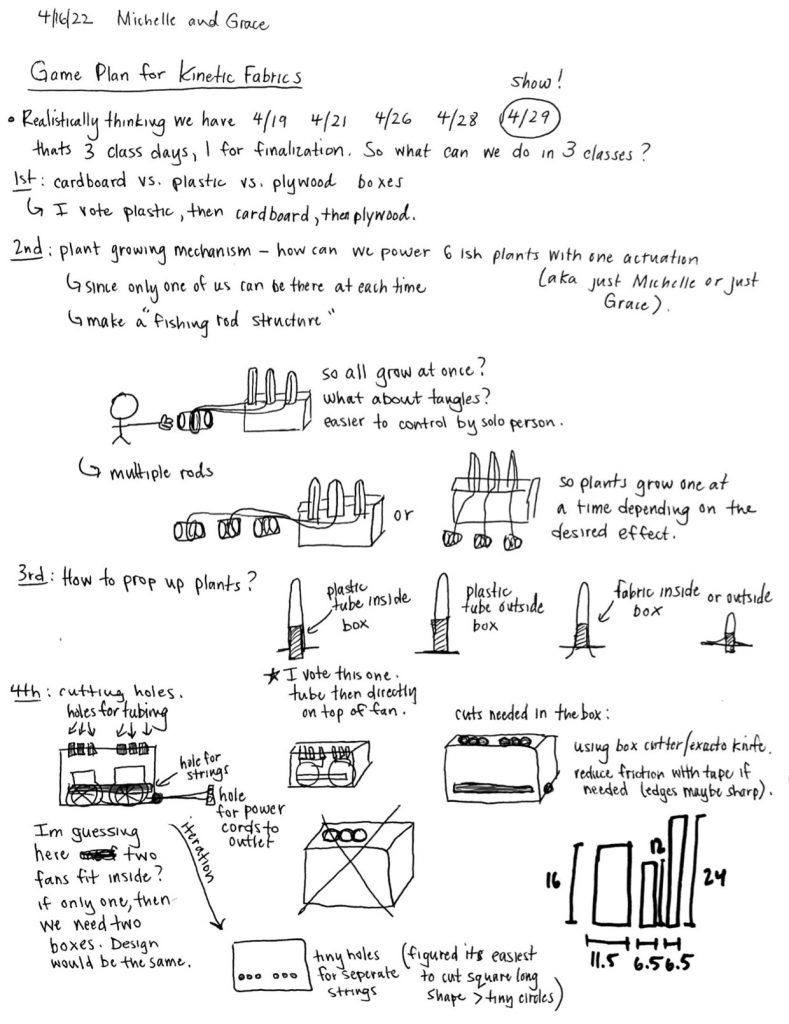 4/16/22 Michelle and Grace
Game Plan for Kinetic Fabrics
show!
• Realistically thinking we have 4/19 4/21 4/26 4/28 4/29
thats 3 class days, 1 for finalization. So what can we do in 3 classes?
1st: cardboard vs. plastic vs. plywood boxes
↳ I vote plastic, then cardboard, then plywood.
2nd: plant growing mechanism – how can we power 6 ish plants with one actuation
(aka just Michelle or just
Grace).
↳ since only one of us can be there at each time
↳ make a "fishing rod structure"
so all grow at once?
what about tangles?
easier to control by solo person.
↳ multiple rods
or
so plants grow one at
a time depending on the
desired effect.
3rd: How to prop up plants?
plastic
tube inside
box
plastic
tube outside
box
fabric inside
box
or outside
★ I vote this one.
tube then directly
on top of fan.
4th: cutting holes.
holes for tubing
hole for
strings
hole
for power
cords to
outlet
cuts needed in the box:
using box cutter/exacto knife.
reduce friction with tape if
needed (edges maybe sharp).
Im guessing
here two
fans fit inside?
if only one, then
we need two
boxes. Design
would be the same.
iteration
tiny holes
for seperate
strings
(figured its easiest
to cut square long
shape > tiny circles)
16
12
24
11.5 6.5 6.5